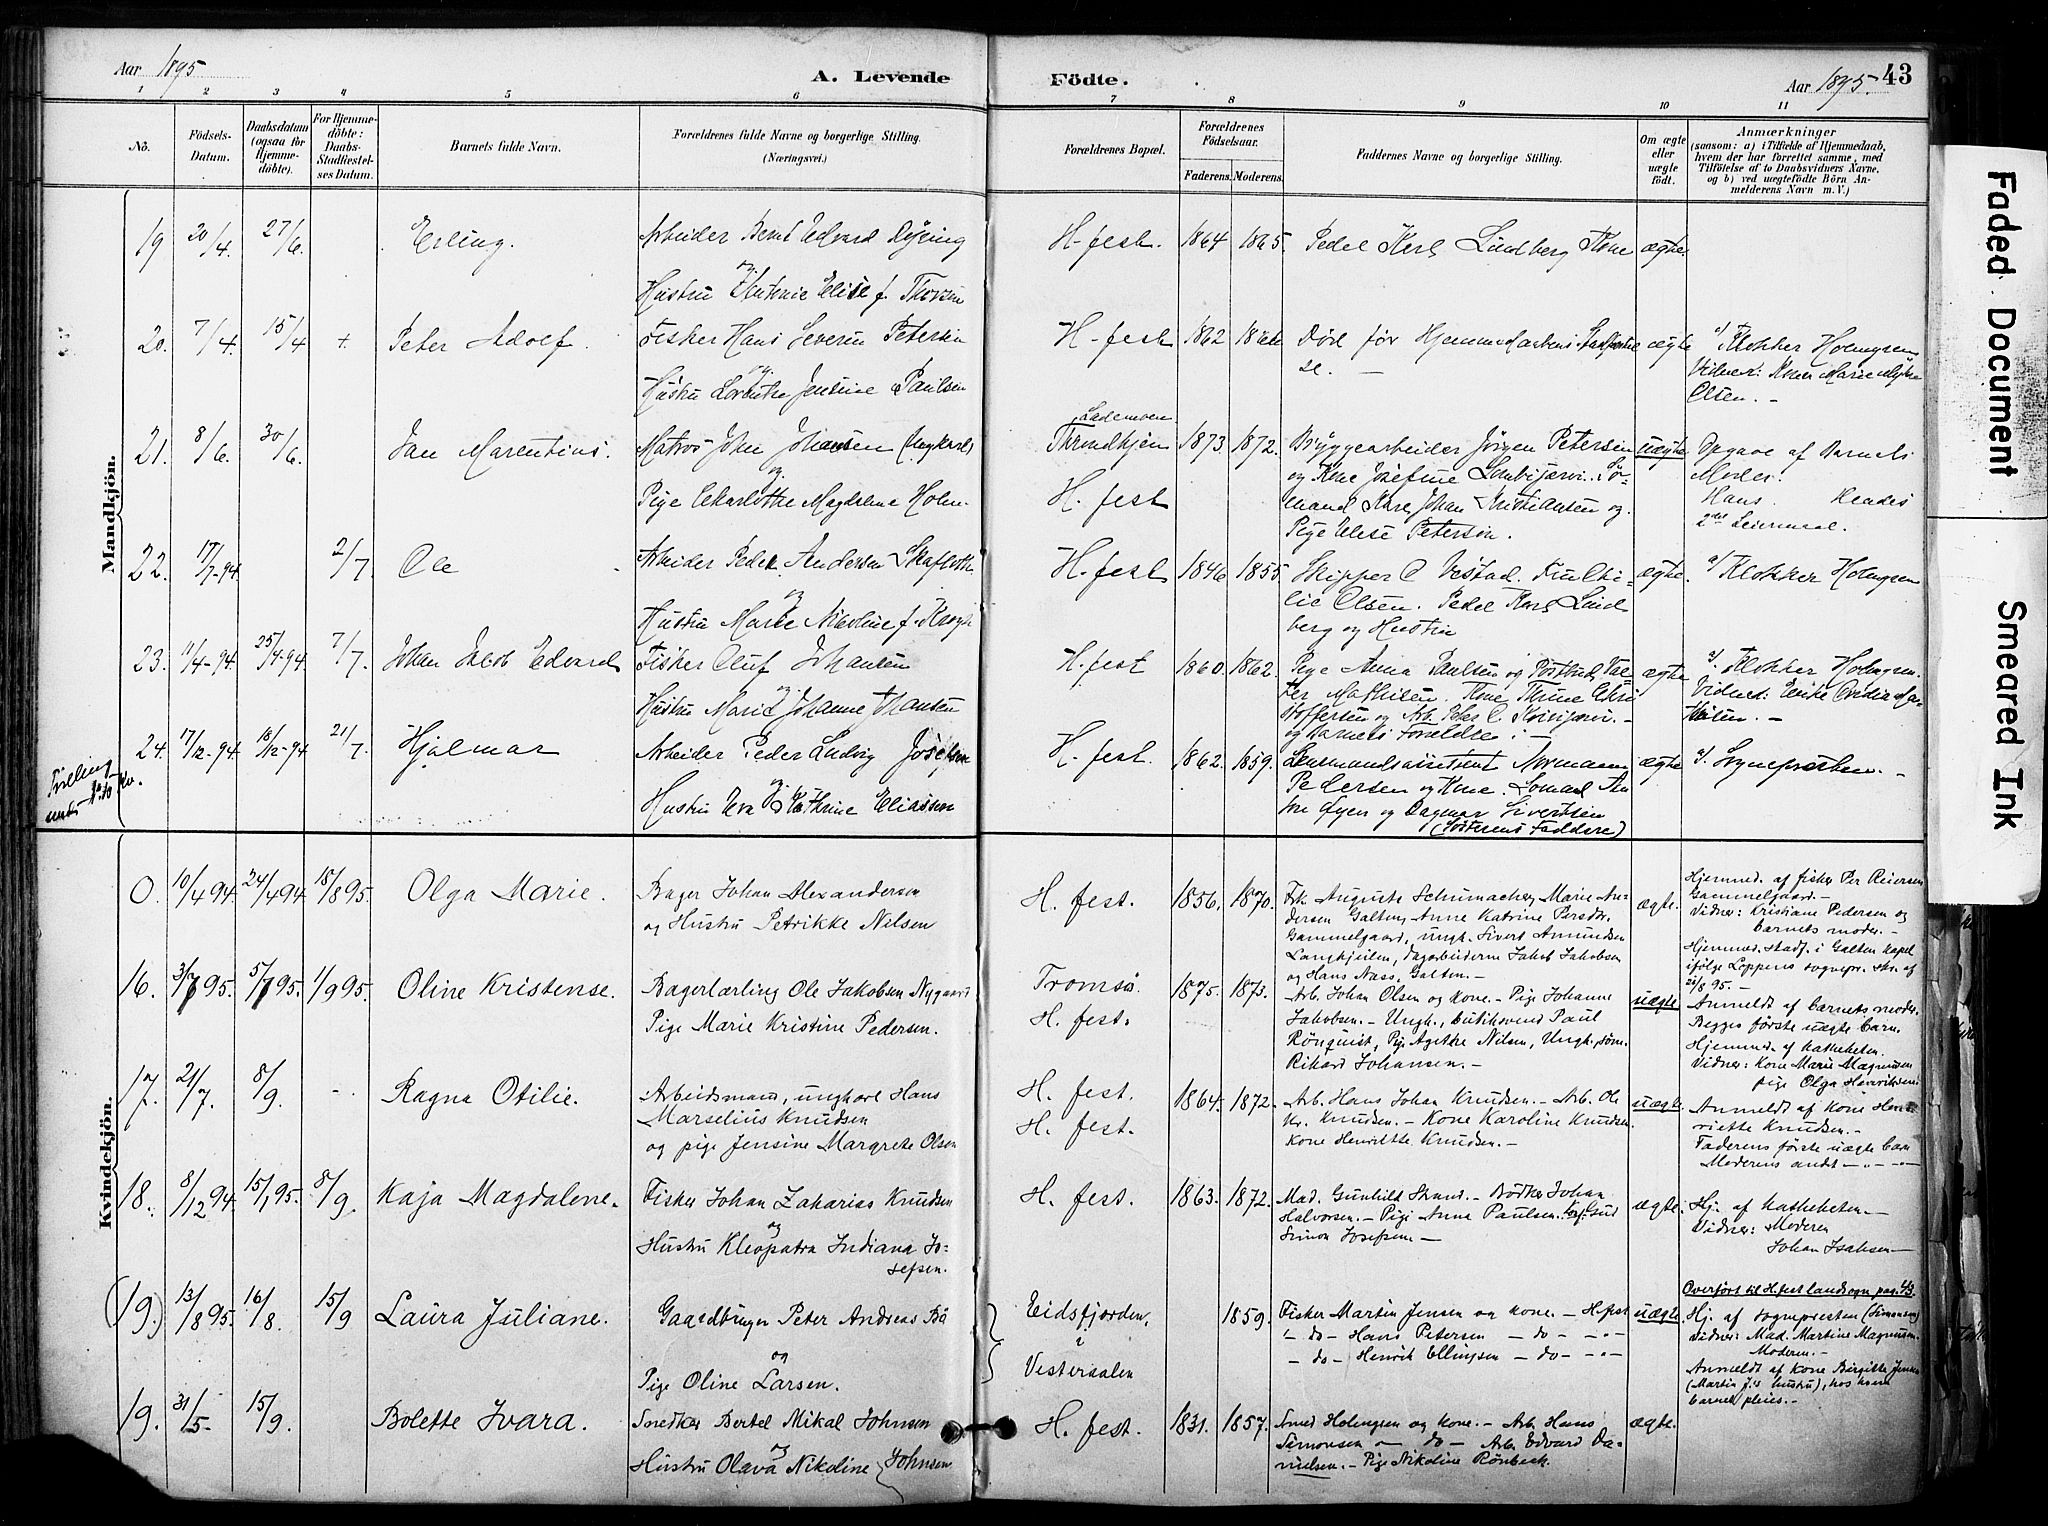 Aar 1895
A. Levende
Födte.
Aar 1895.
43
1 2 3 4 5 6 7 8 9 10 11
No.
Födsels-
Datum.
Daabsdatum
(ogsaa for
Hjemme-
döbte).
For Hjemme-
döbte:
Daabs-
Stadfæstel-
ses Datum.
Barnets fulde Navn.
Forældrenes fulde Navne og borgerlige Stilling.
(Næringsvei.)
Forældrenes Bopæl.
Forældrenes
Födselsaar.
Faderens. Moderens.
Faddernes Navne og borgerlige Stilling.
Om ægte
eller
uægte
födt.
Anmærkninger
(saasom: a) i Tilfælde af Hjemmedaab,
hvem der har forrettet samme, med
Tilföielse af to Daabsvidners Navne,
og b) ved uægtefödte Börn An-
melderens Navn m. V.)
Mandkjön.
19 20/4. 27/6. Erling.
Arbeider Bernt Edvard
og
Hustru Antonie Elise f. Thorsen
H.fest. 1864 1865. Pedel Karl Lindberg Kone ægte
20. 7/4. 15/4 + Peter Adolf.
Fisker Hans Severin Petersen
og
Hustru Jensine Paulsen
H-fest 1862 Død før Hjemmedaabens Stadfæstel
se. –
ægte
a/ Klokker Holmgren
Vidner: Kone Marie
Olsen. –
21. 8/6. 30/6. Jan Marentius.
Matros John Johansen (Ungkarl)
og
Pige Charlotte Magdalena Holm.
Lademoen
Throndhjem
H. fest
1873 1872.
Bryggearbeider Jörgen Petersen
og Kone Josefine Sö-
mand Karl Johan Kristiansen og
Pige Elise Peterson.
uægte
Opgave af Barnets
Moder.
Hans Hendes
2det Leiermaal.
22. 17/7-94. 2/7. Ole
Arbeider Peder Andersen
og
Hustru Marie Nicoline f. Krogh
H.fest 1846 1855.
Skipper O Vestad. Fru
Olsen. Pedel Karl Lind
berg og Hustru
ægte. a/ Klokker Holmgren
23. 11/4-94. 25/4-94 7/7. Johan Jakob Edvard
Fisker Oluf Johansen
og
Hustru Marie Johanne Johansen
H.fest 1860. 1862.
Pige Anna Paulsen og Postbud
Mathisen. Kone Thrine Chri
stoffersen og Arb. Peter C.
og Barnets Forældre. –
ægte
a/. Klokker Holmgren.
24. 17/12-94. 18/12-94 21/7. Hjalmar
Tvilling
under No 10 Kv.
Arbeider Peder Ludvig Josefsen
og
Hustru Eva Kathrine Eliassen
H. fest. 1862. 1859.
Lensmandsassistent Normann
Pedersen og Kone. Lomand
Øyen og Dagmar Sivertsen
(Søsterens Faddere)
ægte a/. Sognepresten. –
Kvindekjön.
0. 10/4 94. 24/4 94 18/8 95. Olga Marie.
Bager Johan Alexandersen
og Hustru Petrikke Nilsen
H. fest. 1856. 1870.
Frk Auguste Schumacher, Marie An-
dersen Galten, Anne Katrine Persdtr.
Gammelgaard, ungk. Sivert Amundsen
Langkjeilen, Dagarbeiderne Jakob Jakobsen
og Hans Nass, Galten. –
ægte.
Hjemmed. af fisker Per Reiersen
Gammelgaard. –
Vidner: Kristiane Pedersen og
barnets moder. –
Hjemmed. stadf. i Galten kapel
ifølge Loppens sognepr. skr. af
21/8 95. –
16. 3/7 95. 5/7 95. 1/9 95. Oline Kristense.
Bagerlærling Ole Jakobsen Nygaard
Pige Marie Kristine Pedersen.
Tromsö.
H. fest.
1875. 1873.
Arb. Johan Olsen og kone. – Pige Johanne
Jakobsen. – Ungk., butikbetjent Paul
Rönquist, Pige Agethe Nilsen, Ungk.,
Rikard Johansen. –
uægte
Anmeldt af barnets moder.
Begges første uægte barn.
Hjemmed. af Katheketen.
Vidner: Kone Marie Magnussen
pige Olga Henriksen.
17. 21/7. 8/9. – Ragna Otilie.
Arbeidsmand, ungkarl Hans
Marselius Knudsen
og pige Jensine Margrete Olsen
H. fest.
H. fest.
1864. 1872.
Arb. Hans Johan Knudsen. – Arb. Ole
Kr. Knudsen. – Kone Karoline Knudsen.
Kone Henriette Knudsen. –
uægte.
Anmeldt af Kone Hen-
riette Knudsen. –
Faderens første uægte barn
Moderens andt – " – " –
18. 8/12 94. 15/1 95. 8/9. Kaja Magdalene.
Fisker Johan Zakarias Knudsen
og
Hustru Kleopatra Indiana Jo-
sefsen.
H. fest. 1863. 1872.
Mad. Gunhild Strand. – Bödker Johan
Halvorsen. – Pige Anna Paulsen.
Simon Josefsen –
ægte.
Hj. af Katheketen. –
Vidner: Moderen
Johan Isaksen –
(19.) 13/8 95. 16/8. 15/9 Laura Juliane.
Gaardbruger Peter Andreas Bö
og
Pige Oline Larsen.
Eidsfjorden,
i
Vesteraalen
1859.
Fisker Martin Jensen og kone. – H.fest
" – do – Hans Petersen – do – – " –
– do – Henrik Ellingsen – do – – " –
uægte.
Overført til H.fest landsogn pag. 43.
Hj. af sognepresten (Simonsen)
Vidner: Mad. Martine Magnussen.
Moderen. –
Anmeldt af Kone Birgitte Jensen
(Martin J.s hustru), hos hvem
barnet pleies. –
19. 31/5 15/9. Bolette Ivara.
Snedker Bertel Mikal Johnsen
og
Hustru Olava Nikoline Johnsen
H. fest. 1831. 1857.
Smed Holmgren og kone. – Arb. Hans
Simonsen – do – Arb. Edvard Da-
nielsen. – Pige Nikoline Rönbeck.
ægte.
Faded Document
Smeared Ink